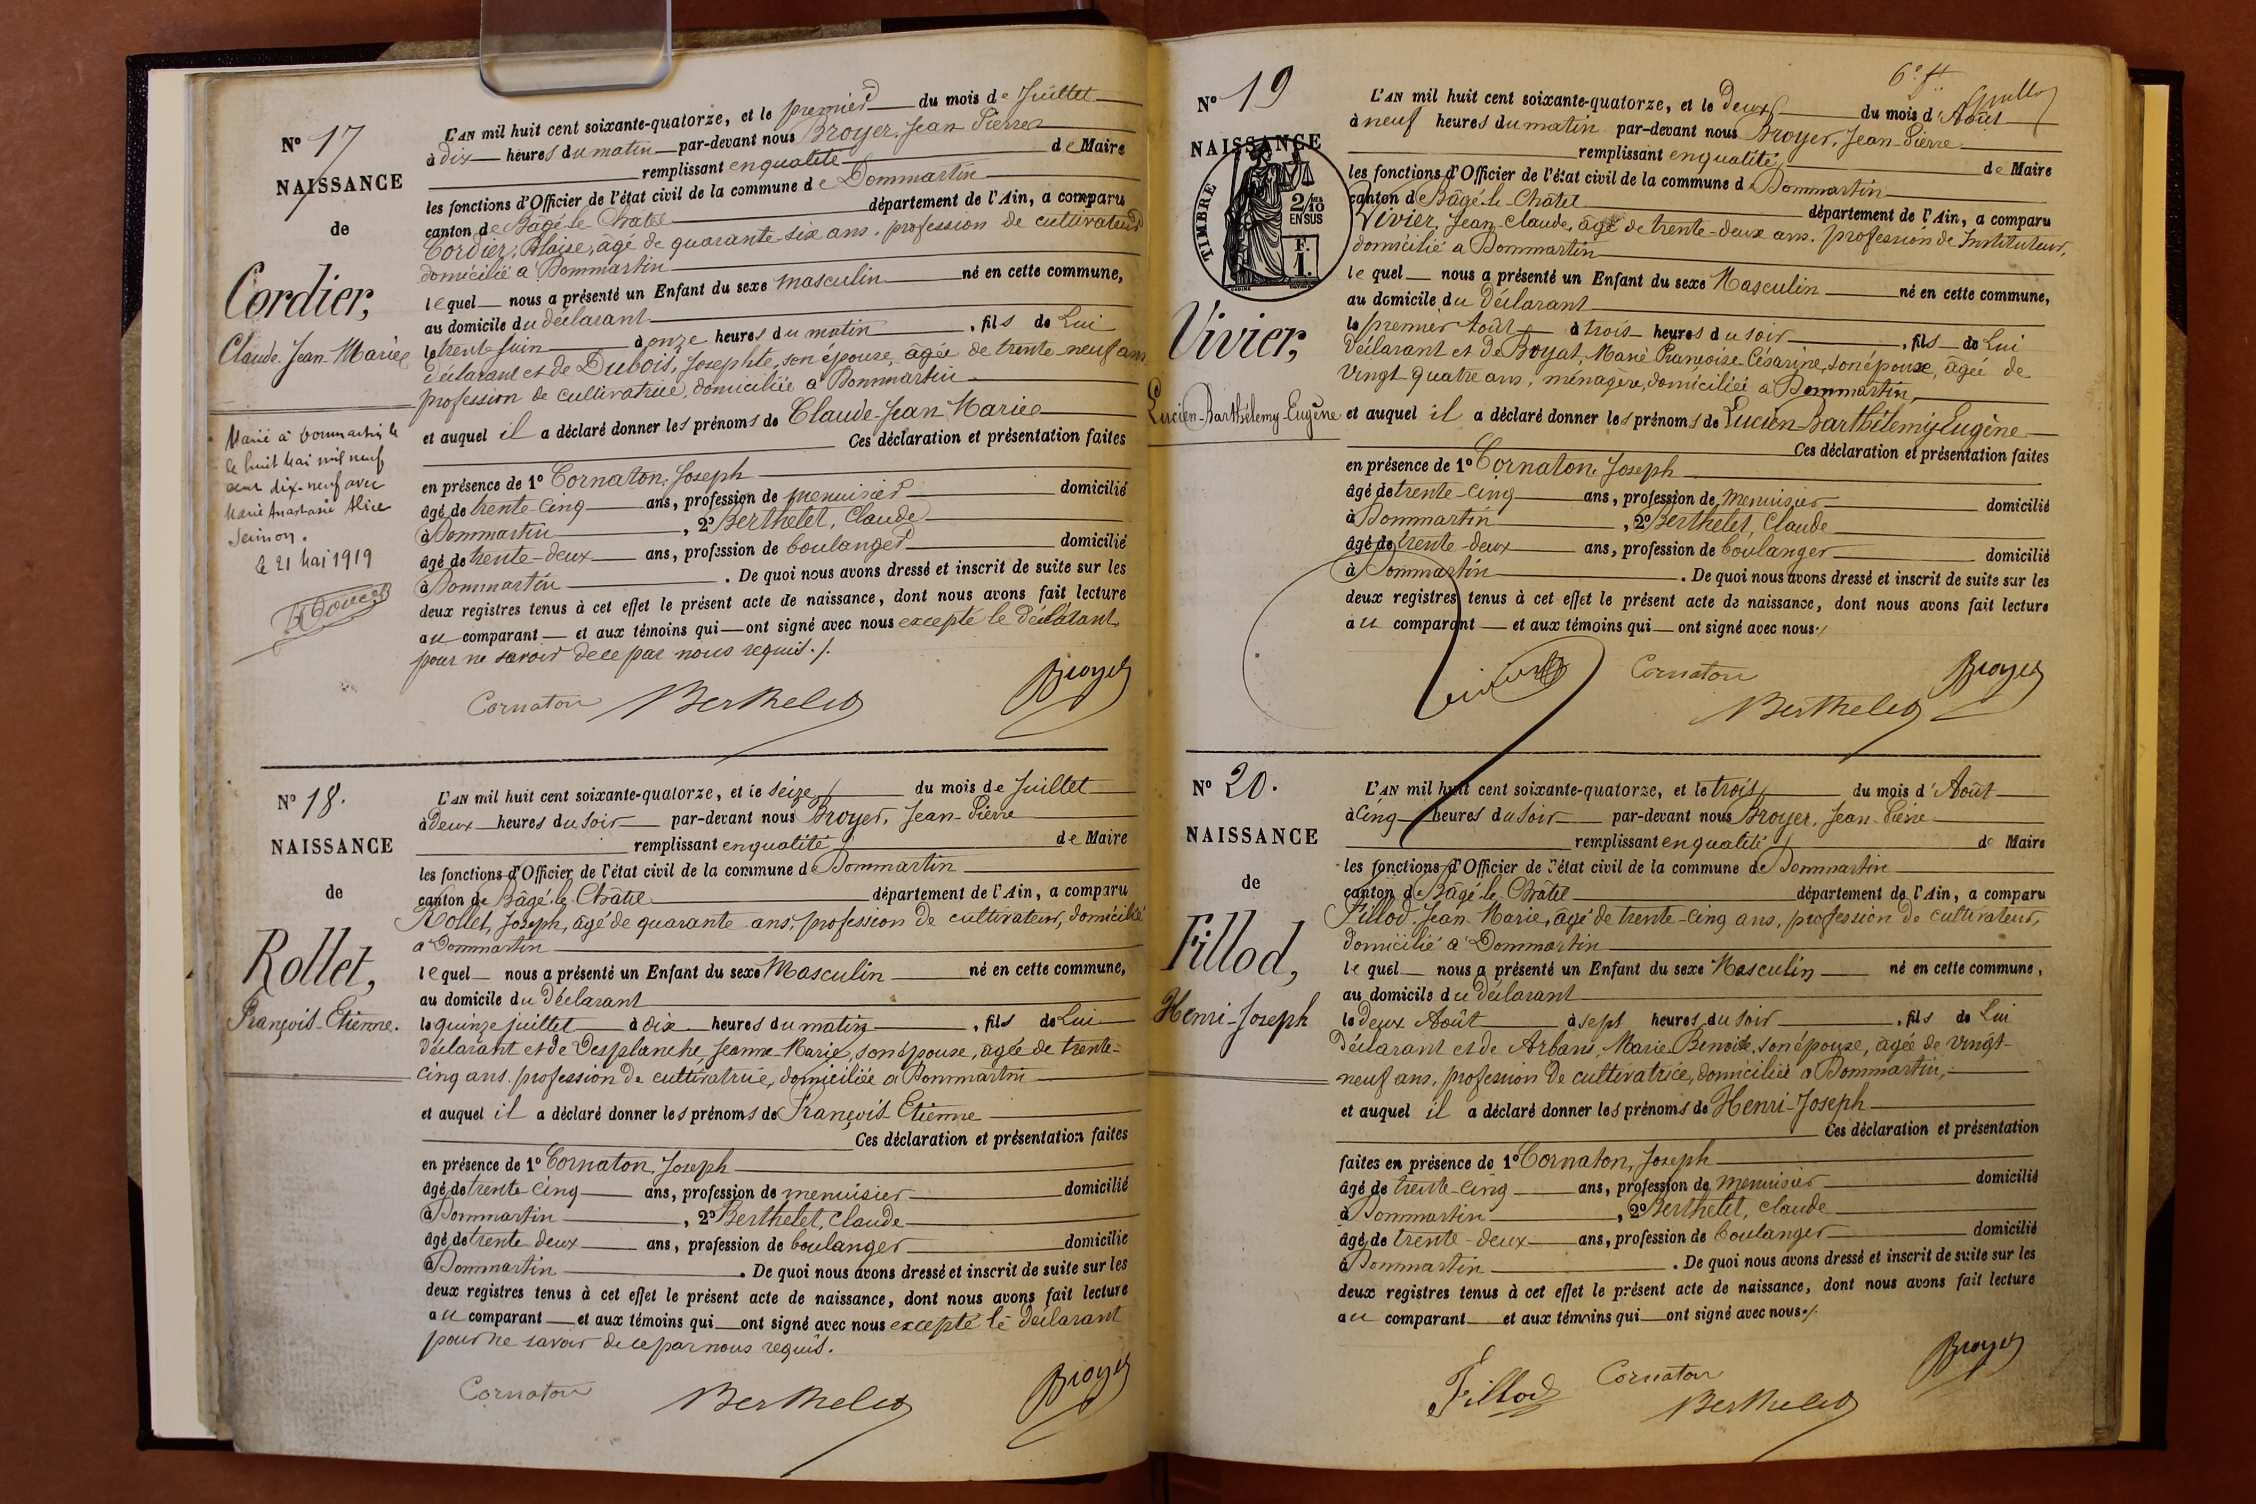 N° 17
NAISSANCE
de
Cordier,
Claude-Jean-Marie
Marié à Dommartin le
le huit Mai mil neuf
cent dix-neuf avec
Marie Anastasie Alice
le 21 Mai 1919
L'AN mil huit cent soixante-quatorze, et le premier du mois de Juillet
à dix heures du matin par-devant nous Broyer, Jean Pierre
remplissant en qualité de Maire
les fonctions d'Officier de l'état civil de la commune de Dommartin
canton de Bâgé-le-Châtel département de l'Ain, a comparu
Cordier, Blaise, âgé de quarante-six ans, profession de cultivateur
domicilié à Dommartin
lequel nous a présenté un Enfant du sexe masculin né en cette commune,
au domicile du déclarant
le trente Juin à onze heures du matin, fils de Lui
déclarant et de Dubois, Josephte, son épouse, âgée de trente-neuf ans
profession de cultivatrice, domiciliée à Dommartin
et auquel il a déclaré donner les prénoms de Claude-Jean-Marie
Ces déclaration et présentation faites
en présence de 1° Cornaton, Joseph
âgé de trente-cinq ans, profession de menuisier domicilié
à Dommartin, 2° Berthelet, Claude
âgé de trente-deux ans, profession de boulanger domicilié
à Dommartin. De quoi nous avons dressé et inscrit de suite sur les
deux registres tenus à cet effet le présent acte de naissance, dont nous avons fait lecture
au comparant et aux témoins qui ont signé avec nous excepté le déclarant
pour ne savoir de ce par nous requis ./.
Cornaton Berthelet Broyer
N° 18.
NAISSANCE
de
Rollet,
François-Etienne.
L'AN mil huit cent soixante-quatorze, et le seize du mois de Juillet
à deux heures du soir par-devant nous Broyer, Jean-Pierre
remplissant en qualité de Maire
les fonctions d'Officier de l'état civil de la commune de Dommartin
canton de Bâgé-le-Châtel département de l'Ain, a comparu
Rollet, Joseph, âgé de quarante ans, profession de cultivateur, domicilié
à Dommartin
lequel nous a présenté un Enfant du sexe Masculin né en cette commune,
au domicile du déclarant
le quinze juillet à dix heures du matin, fils de Lui
déclarant et de Desplanche, Jeanne-Marie, son épouse, âgée de trente-
cinq ans, profession de cultivatrice, domiciliée à Dommartin
et auquel il a déclaré donner les prénoms de François-Etienne
Ces déclaration et présentation faites
en présence de 1° Cornaton, Joseph
âgé de trente-cinq ans, profession de menuisier domicilié
à Dommartin, 2° Berthelet, Claude
âgé de trente deux ans, profession de boulanger domicilié
à Dommartin. De quoi nous avons dressé et inscrit de suite sur les
deux registres tenus à cet effet le présent acte de naissance, dont nous avons fait lecture
au comparant et aux témoins qui ont signé avec nous excepté le déclarant
pour ne savoir de ce par nous requis.
Cornaton Berthelet Broyer
6e ft
N° 19
NAISSANCE
TIMBRE
2/10 EN SUS
F. 1.
Vivier,
Lucien-Barthélemy-Eugène
L'AN mil huit cent soixante-quatorze, et le deux du mois d'Août
à neuf heures du matin par-devant nous Broyer, Jean-Pierre
remplissant en qualité de Maire
les fonctions d'Officier de l'état civil de la commune de Dommartin
canton de Bâgé-le-Châtel département de l'Ain, a comparu
Vivier, Jean-Claude, âgé de trente-deux ans, profession de Instituteur,
domicilié à Dommartin
lequel nous a présenté un Enfant du sexe Masculin né en cette commune,
au domicile du déclarant
le premier Août à trois heures du soir, fils de Lui
déclarant et de Boyat, Marie Françoise Césarine, son épouse, âgée de
vingt-quatre ans, ménagère, domiciliée à Dommartin,
et auquel il a déclaré donner les prénoms de Lucien-Barthélemy-Eugène
Ces déclaration et présentation faites
en présence de 1° Cornaton, Joseph
âgé de trente-cinq ans, profession de menuisier domicilié
à Dommartin, 2° Berthelet, Claude
âgé de trente-deux ans, profession de boulanger domicilié
à Dommartin. De quoi nous avons dressé et inscrit de suite sur les
deux registres tenus à cet effet le présent acte de naissance, dont nous avons fait lecture
au comparant et aux témoins qui ont signé avec nous ./
Vivier Cornaton Broyer
Berthelet
N° 20.
NAISSANCE
de
Fillod,
Henri-Joseph
L'AN mil huit cent soixante-quatorze, et le trois du mois d'Août
à cinq heures du soir par-devant nous Broyer, Jean-Pierre
remplissant en qualité de Maire
les fonctions d'Officier de l'état civil de la commune de Dommartin
canton de Bâgé-le-Châtel département de l'Ain, a comparu
Fillod, Jean-Marie, âgé de trente-cinq ans, profession de cultivateur,
domicilié à Dommartin
lequel nous a présenté un Enfant du sexe Masculin né en cette commune,
au domicile du déclarant
le deux Août à sept heures du soir, fils de Lui
déclarant et de Arbans, Marie-Benoite, son épouse, âgée de vingt-
neuf ans, profession de cultivatrice, domiciliée à Dommartin,
et auquel il a déclaré donner les prénoms de Henri-Joseph
Ces déclaration et présentation
faites en présence de 1° Cornaton, Joseph
âgé de trente-cinq ans, profession de menuisier domicilié
à Dommartin, 2° Berthelet, Claude
âgé de trente-deux ans, profession de boulanger domicilié
à Dommartin. De quoi nous avons dressé et inscrit de suite sur les
deux registres tenus à cet effet le présent acte de naissance, dont nous avons fait lecture
au comparant et aux témoins qui ont signé avec nous ./.
Fillod Cornaton Broyer
Berthelet